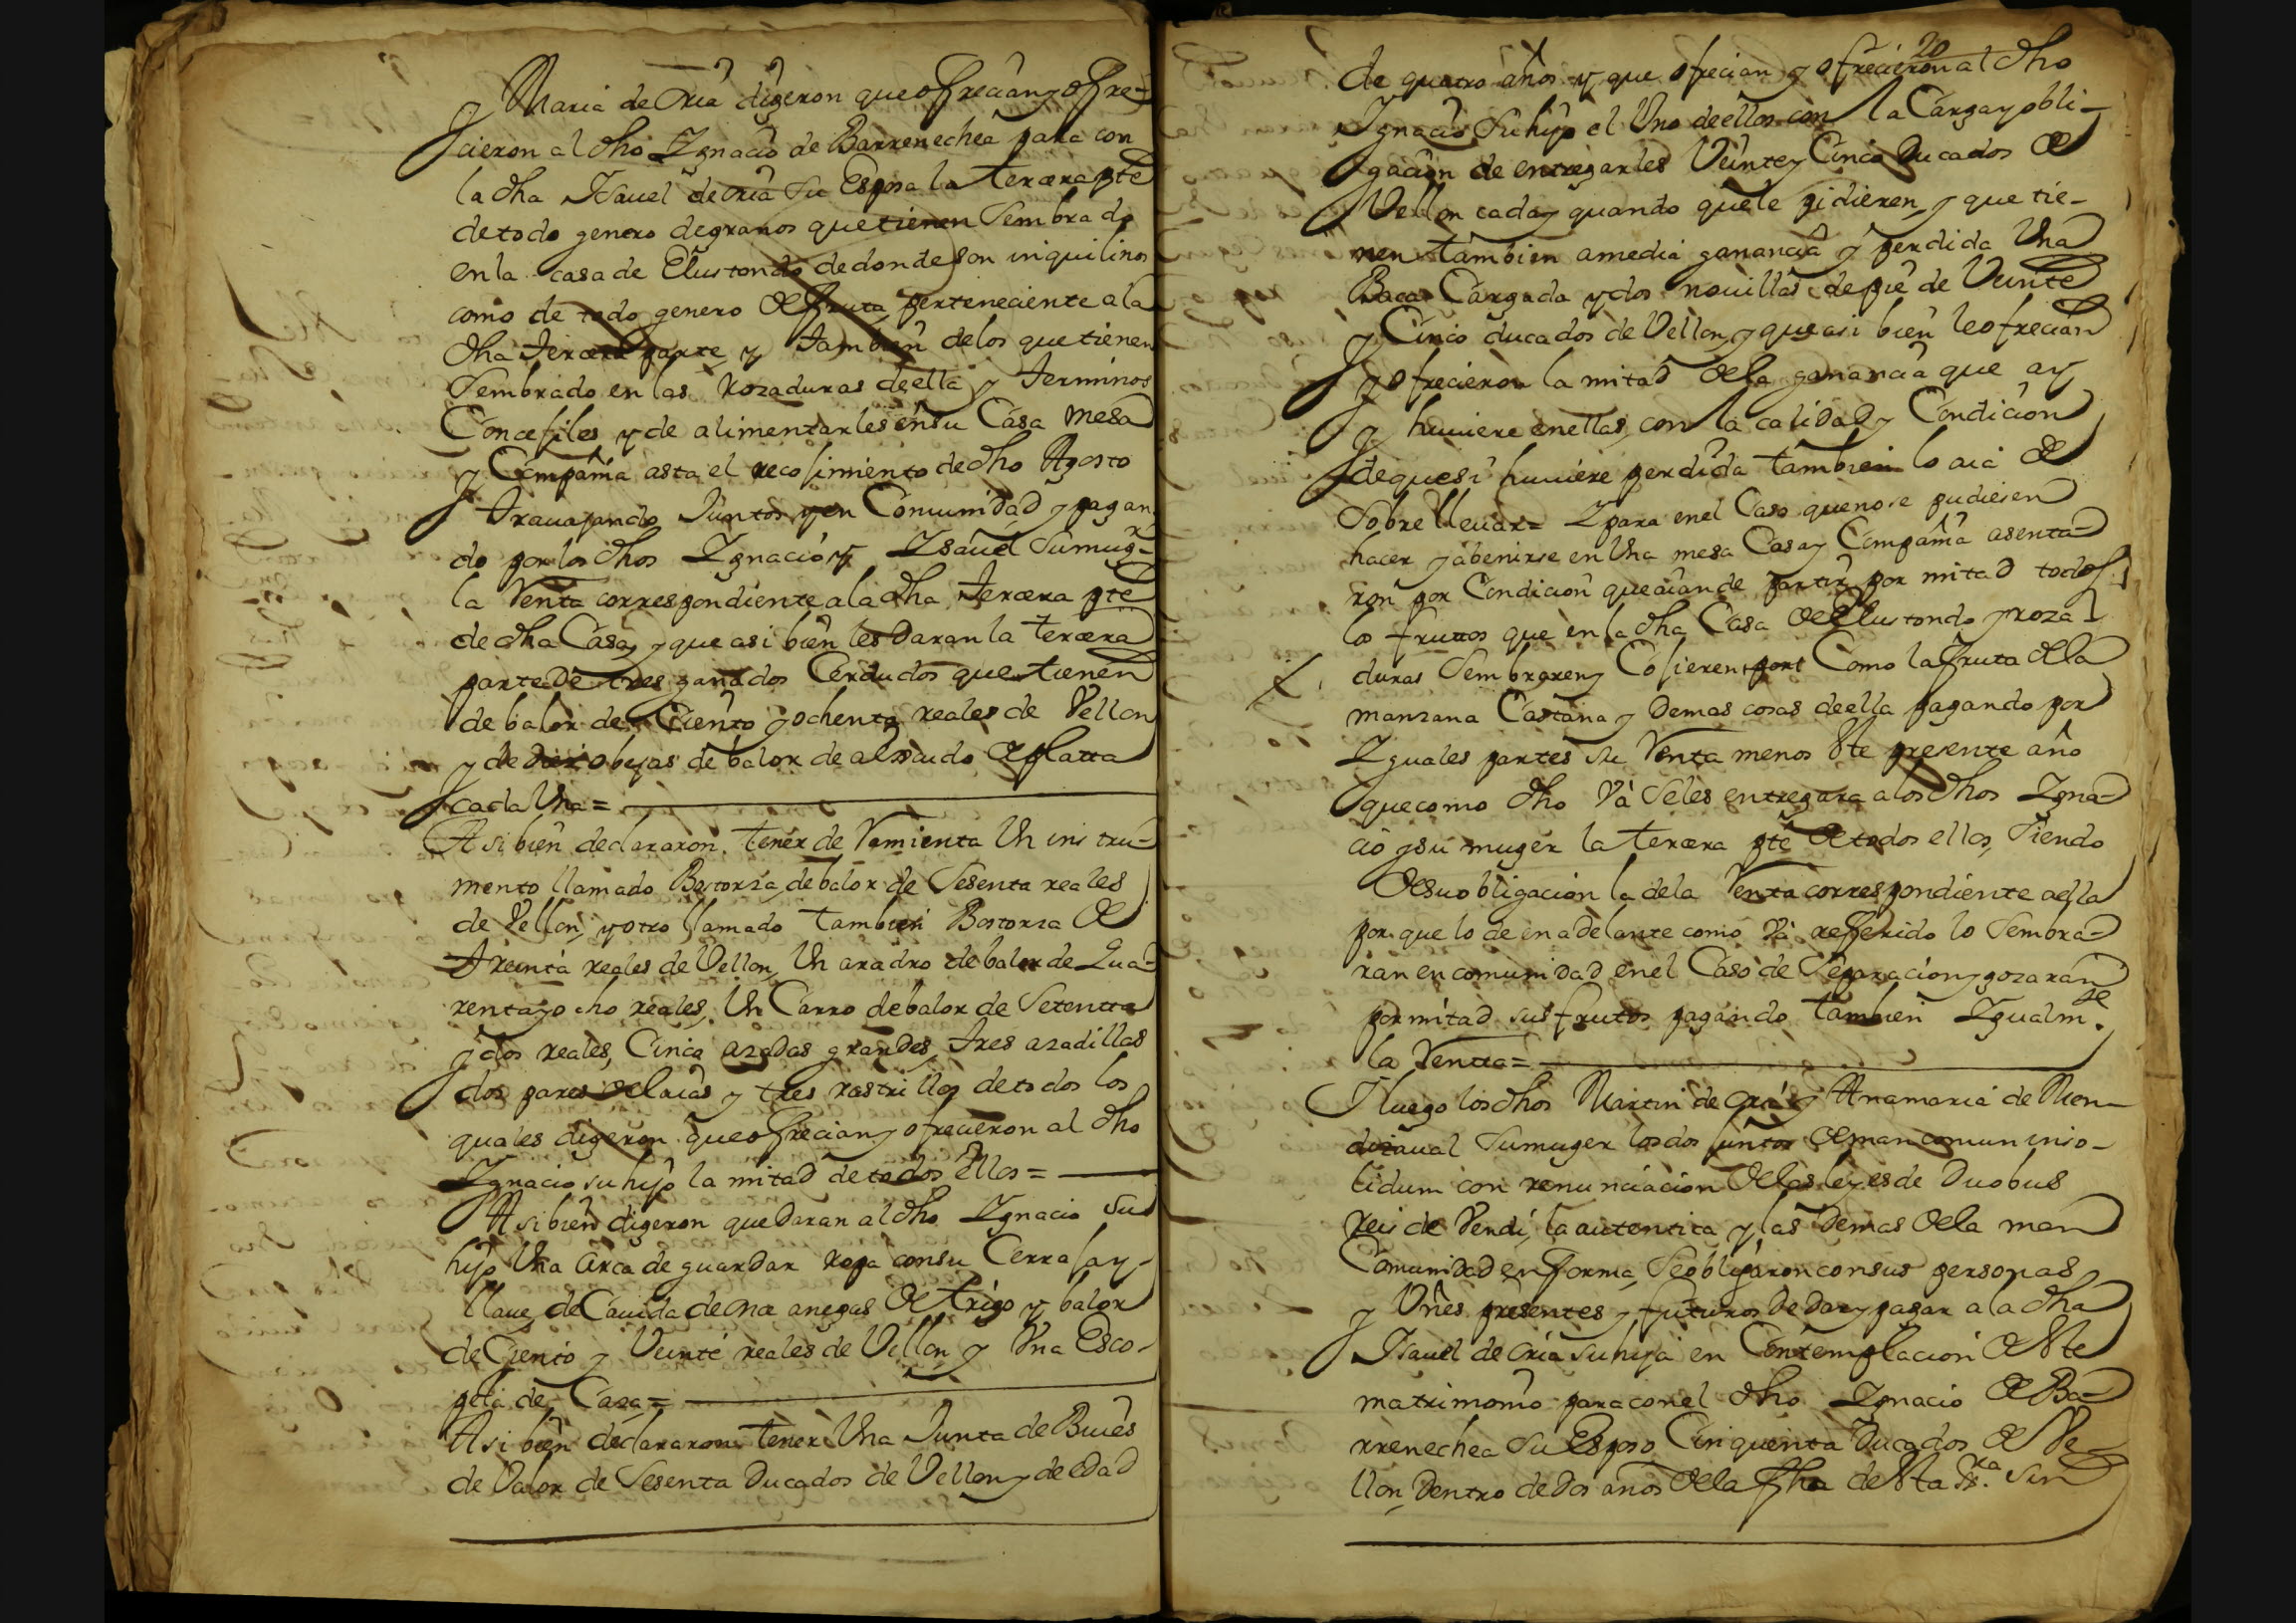 y Maria de Oria digeron que ofrecian y ofre-
cieron al dho Ygnacio de Barrenechea para con
la dha Ysauel de oria su Esposa la tercera pte
de todo genero de granos que tienen Sembrado
en la casa de Elustondo de donde son inquilinos
como de todo genero de fruta perteneciente a la
dha tercera parte, y tambien de los que tienen
Sembrado en las Rozaduras de ella y terminos
Concejiles y de alimentarles en su Casa mesa
y Compañia asta el recojimiento de dho Agosto
trauajando Juntos y en Comunidad y pagan
do por los dhos Ygnacio y Ysauel su mugr
la Renta correspondiente a la dha tercera pte
de dha Casa, y que asi bien les daran la tercera
parte de tres ganados Cerdudos que tienen
de balor de Ciento y ochenta reales de Vellon
y de diez obejas de balor de a escudo de platta
cada Vna =
Asi bien declararon tener de Remienta Vn instru-
mento llamado Bostorza, de balor de Sesenta reales
de Vellon, y otro llamado tambien Bostorza de
treinta reales de Vellon, Vn aradro de balor de Qua-
renta y ocho reales, Vn Carro de balor de Setentta
y dos reales, Cinco azadas grandes, tres azadillas
dos pares de laias y tres rastrillos de todos los
quales digeron que ofrecian y ofrecieron al dho
Ygnacio su hijo la mitad de todos ellos =
Asi bien digeron que daran al dho Ygnacio su
hijo Vna Arca de guardar ropa con su Cerraja y
llaue, de Cauida de once anegas de trigo y balor
de Ciento y Veinte reales de Vellon y Vna Esco-
peta de Caza =
Asi bien declararon tener Vna Junta de Bueies
de Valor de Sesenta Ducados de Vellon y de edad
20
de quatro años y que ofrecian y ofrecieron al dho
Ygnacio su hijo el Vno de ellos con la Carga y obli-
gacion de entregarles Veinte y Cinco Ducados de
Vellon cada y quando que le pidieren, y que tie-
nen tambien a media ganancia y perdida Vna
Baca Cargada y dos nouillas de pie de Veinte
y Cinco ducados de Vellon y que asi bien le ofrecian
y ofrecieron la mitad de la ganancia que ay
y huuiere en ellas, con la calidad y Condicion
de que si huuiere perdida tambien lo aia de
Sobrelleuar = Y para en el Caso que no se pudiesen
hacer y abenirse en Vna mesa Casa y Compañia asenta-
ron por Condicion que aian de partir por mitad todos
los fruttos que en la dha Casa de Elustondo y roza
duras Sembraren y Cojieren Como la fruta de la
manzana Castaña y demas cosas de ella pagando por
Yguales partes su Renta menos este presente año
que como dho Va se les entregara a los dhos Ygna-
cio y su muger la tercera pte de todos ellos, Siendo
de su obligacion la de la Renta correspondiente a ella
por que lo de en adelante como Va refferido lo Sembra-
ran en comunidad en el Caso de Separacion y gozaran
por mitad sus frutos pagando tambien Ygualmte
la Rentta =
Y luego los dhos Martin de Oria y Ana maria de Men-
dizaual Su muger los dos juntos de mancomun inso-
lidum con renunciacion de las leyes de Duobus
Reis de Vendi, la autentica y las demas de la man
Comunidad en forma, Se obligaron con sus personas
y Vnes presentes y futuros de dar y pagar a la dha
Ysauel de oria su hija en Contemplacion de este
matrimonio para con el dho Ygnacio de Ba-
rrenechea su Esposo, Cinquenta Ducados de Ve-
llon, dentro de dos años de la fha de esta sin